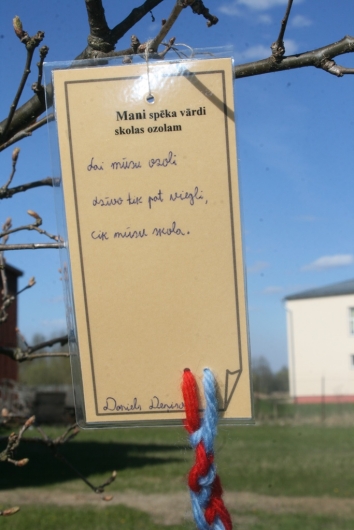 Mani spēka vārdi
skolas ozolam
Lai mūsu ozoli
dzīvo tik pat viegli,
cik mūsu skola.
Daniels